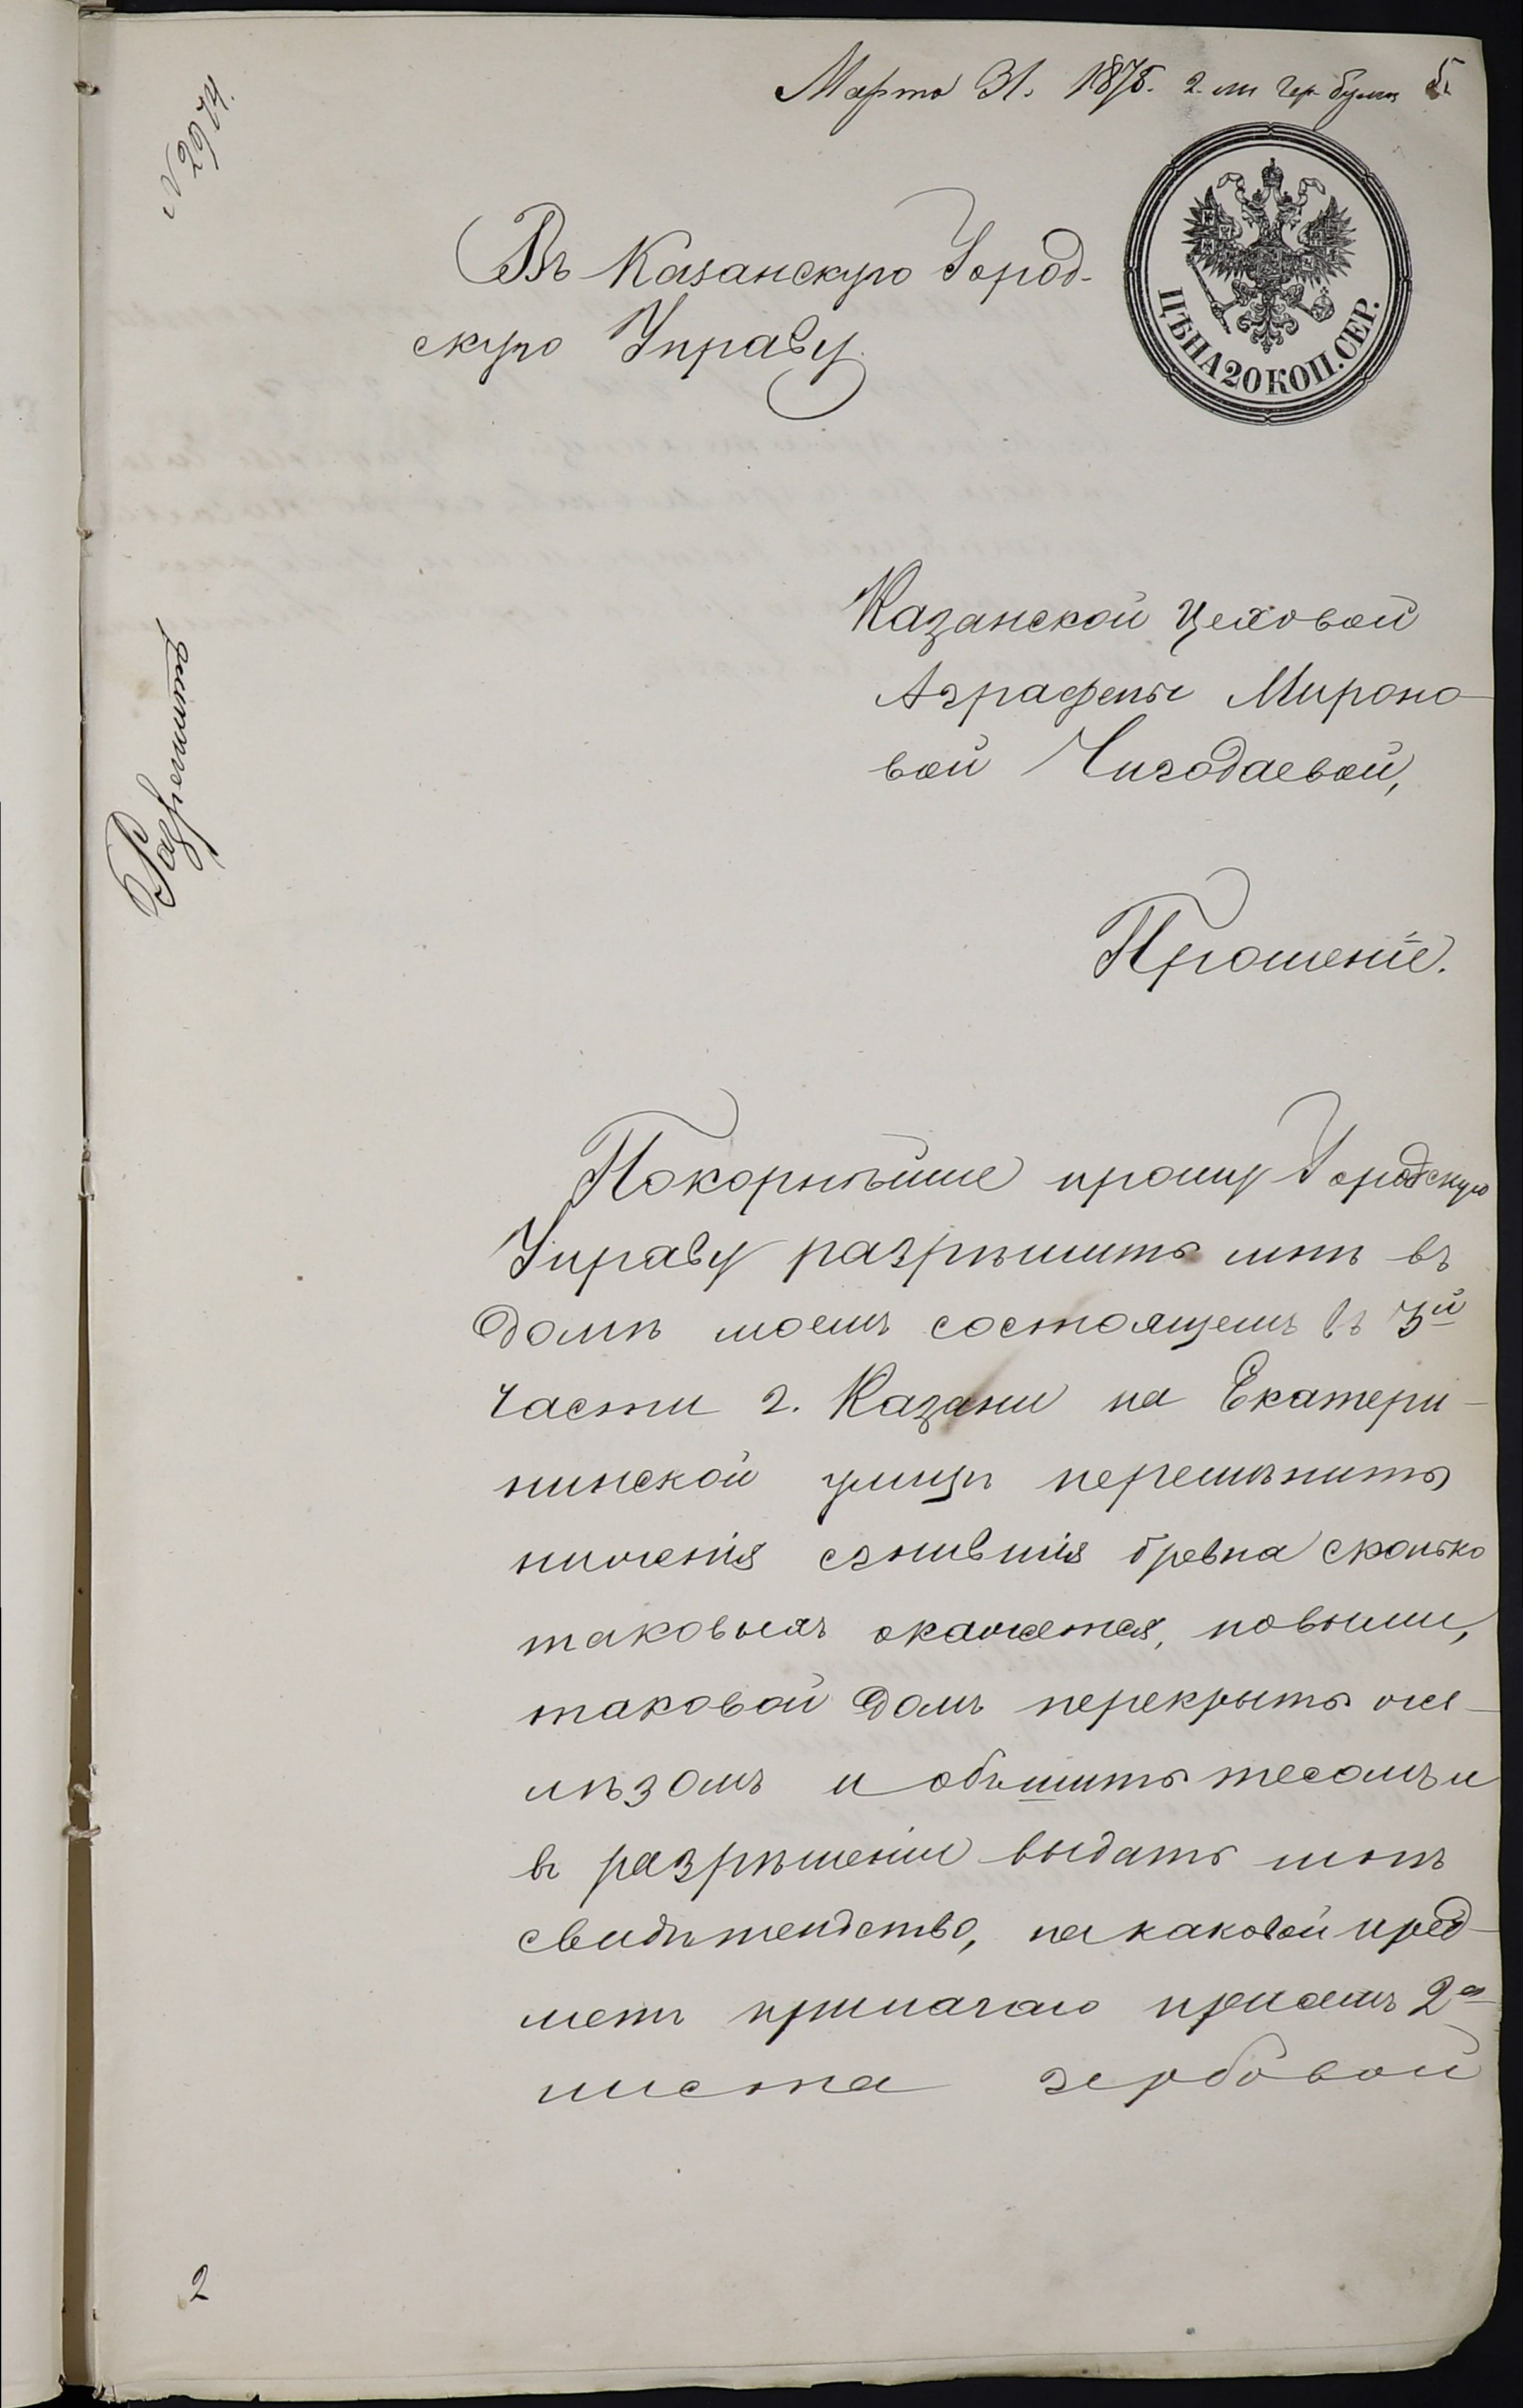 Марта 31. 1875. 2. ли гер. бумаги 5.
N 2974.
Въ Казанскую Город-
скую Управу.
ЦѢНА 20 КОП. СЕР.
Казанской цеховой
Аграфены Мироно-
вой Чигодаевой,
Разрешить
Прошеніе.
Покорнѣйше прошу Городскую
Управу разрѣшить мнѣ въ
домѣ моемъ состоящемъ въ 3й
части г. Казани на Екатери-
нинской улицѣ перемѣнить
нижнія сгнившія бревна сколько
таковыхъ окажется, новыми,
таковой домъ перекрыть же-
лѣзомъ и объшить тесомъ и
въ разрѣшеніи выдать мнѣ
свидѣтельство, на каковой пред-
метъ прилагаю присемъ 2а
листа гербовой
2